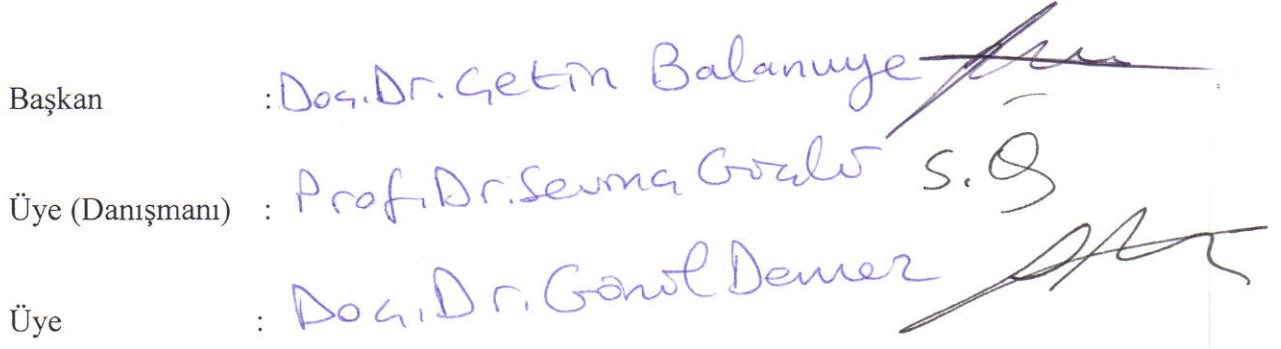 Başkan : Doç.Dr. Çetin Balanuye
Üye (Danışmanı) : Prof.Dr. Sevinç Güçlü S.G
Üye : Doç.Dr. Gönül Demez